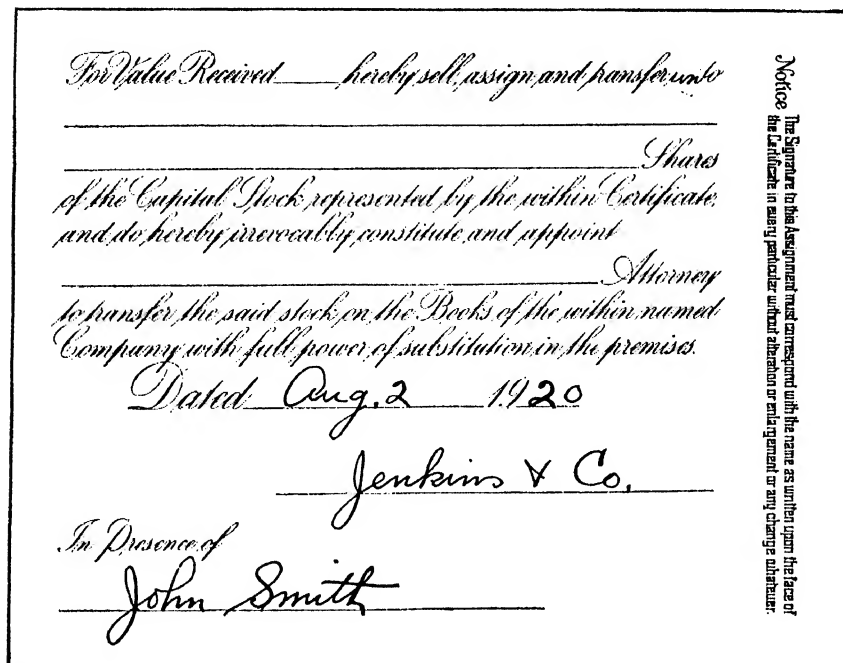 For Value Received ____ hereby sell, assign, and transfer unto
____ Shares
of the Capital Stock represented by the within Certificate,
and do hereby irrevocably constitute and appoint
____ Attorney
to transfer the said stock on the Books of the within named
Company with full power of substitution in the premises.
Dated Aug. 2 1920
Jenkins & Co.
In Presence of
John Smith
Notice The Signature to this Assignment must correspond with the name as written upon the face of
the Certificate in every particular without alteration or enlargement or any change whatever.